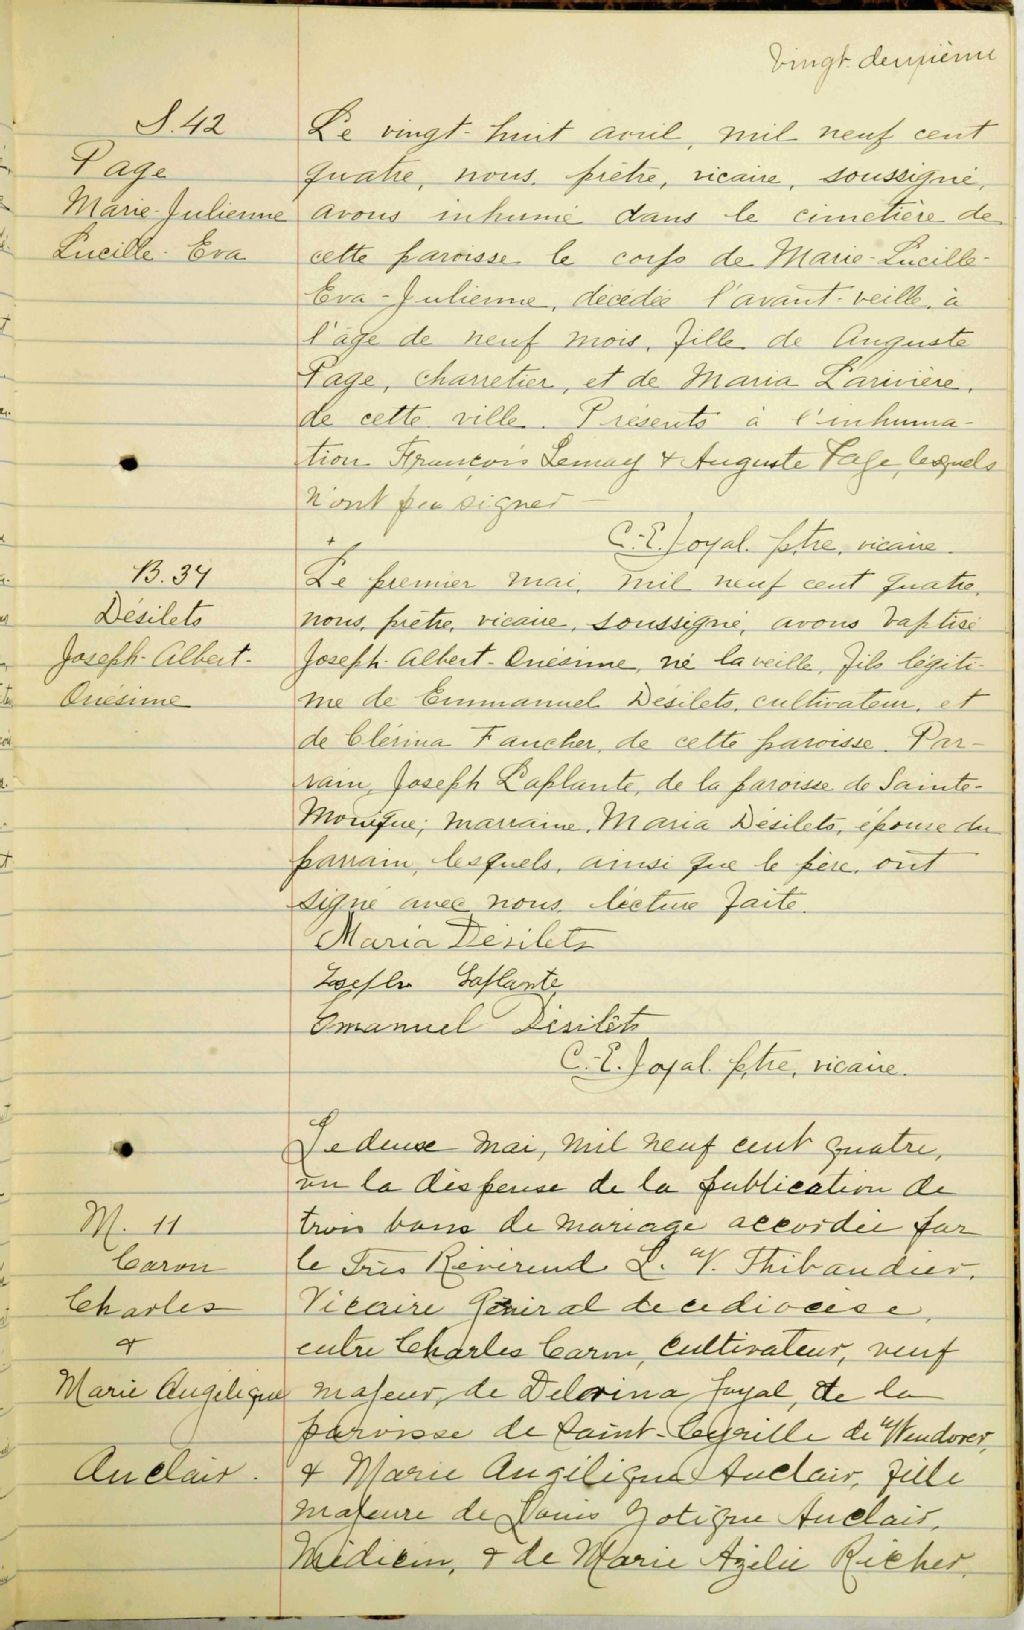 Vingt-deuxième
S. 42
Page
Marie-Julienne
Lucille-Eva
Le vingt-huit avril, mil neuf cent
quatre, nous, prêtre, vicaire, soussigné,
avons inhumé dans le cimetière de
cette paroisse le corps de Marie-Lucille-
Eva-Julienne, décédée l'avant-veille, à
l'âge de neuf mois, fille de Auguste
Page, charretier, et de Maria Larivière,
de cette ville. Présents à l'inhuma-
tion François Lemay & Auguste Page, lesquels
n'ont pu signer —
C.-E. Joyal. ptre, vicaire.
B. 34
Désilets
Joseph-Albert-
Onésime
Le premier mai, mil neuf cent quatre,
nous, prêtre, vicaire, soussigné, avons baptisé
Joseph-Albert-Onésime, né la veille, fils légiti-
me de Emmanuel Désilets, cultivateur, et
de Clérina Faucher, de cette paroisse. Par-
rain, Joseph Laplante, de la paroisse de Sainte-
Monique; marraine, Maria Désilets, épouse du
parrain, lesquels, ainsi que le père, ont
signé avec nous, lecture faite.
Maria Désilets
Joseph Laplante
Emanuel Désilets
C.-E. Joyal. ptre, vicaire.
M. 11
Caron
Charles
&
Marie Angélique
Auclair.
Le deux mai, mil neuf cent quatre,
vu la dispense de la publication de
trois bans de mariage accordée par
le Très Révérend L. V. Thibaudier,
Vicaire Général de ce diocèse,
entre Charles Caron, cultivateur, veuf
majeur, de Delorina Joyal, de la
paroisse de Saint-Cyrille de Wendover,
& Marie Angélique Auclair, fille
majeure de Louis Zotique Auclair,
Médecin, & de Marie Azélie Richer,